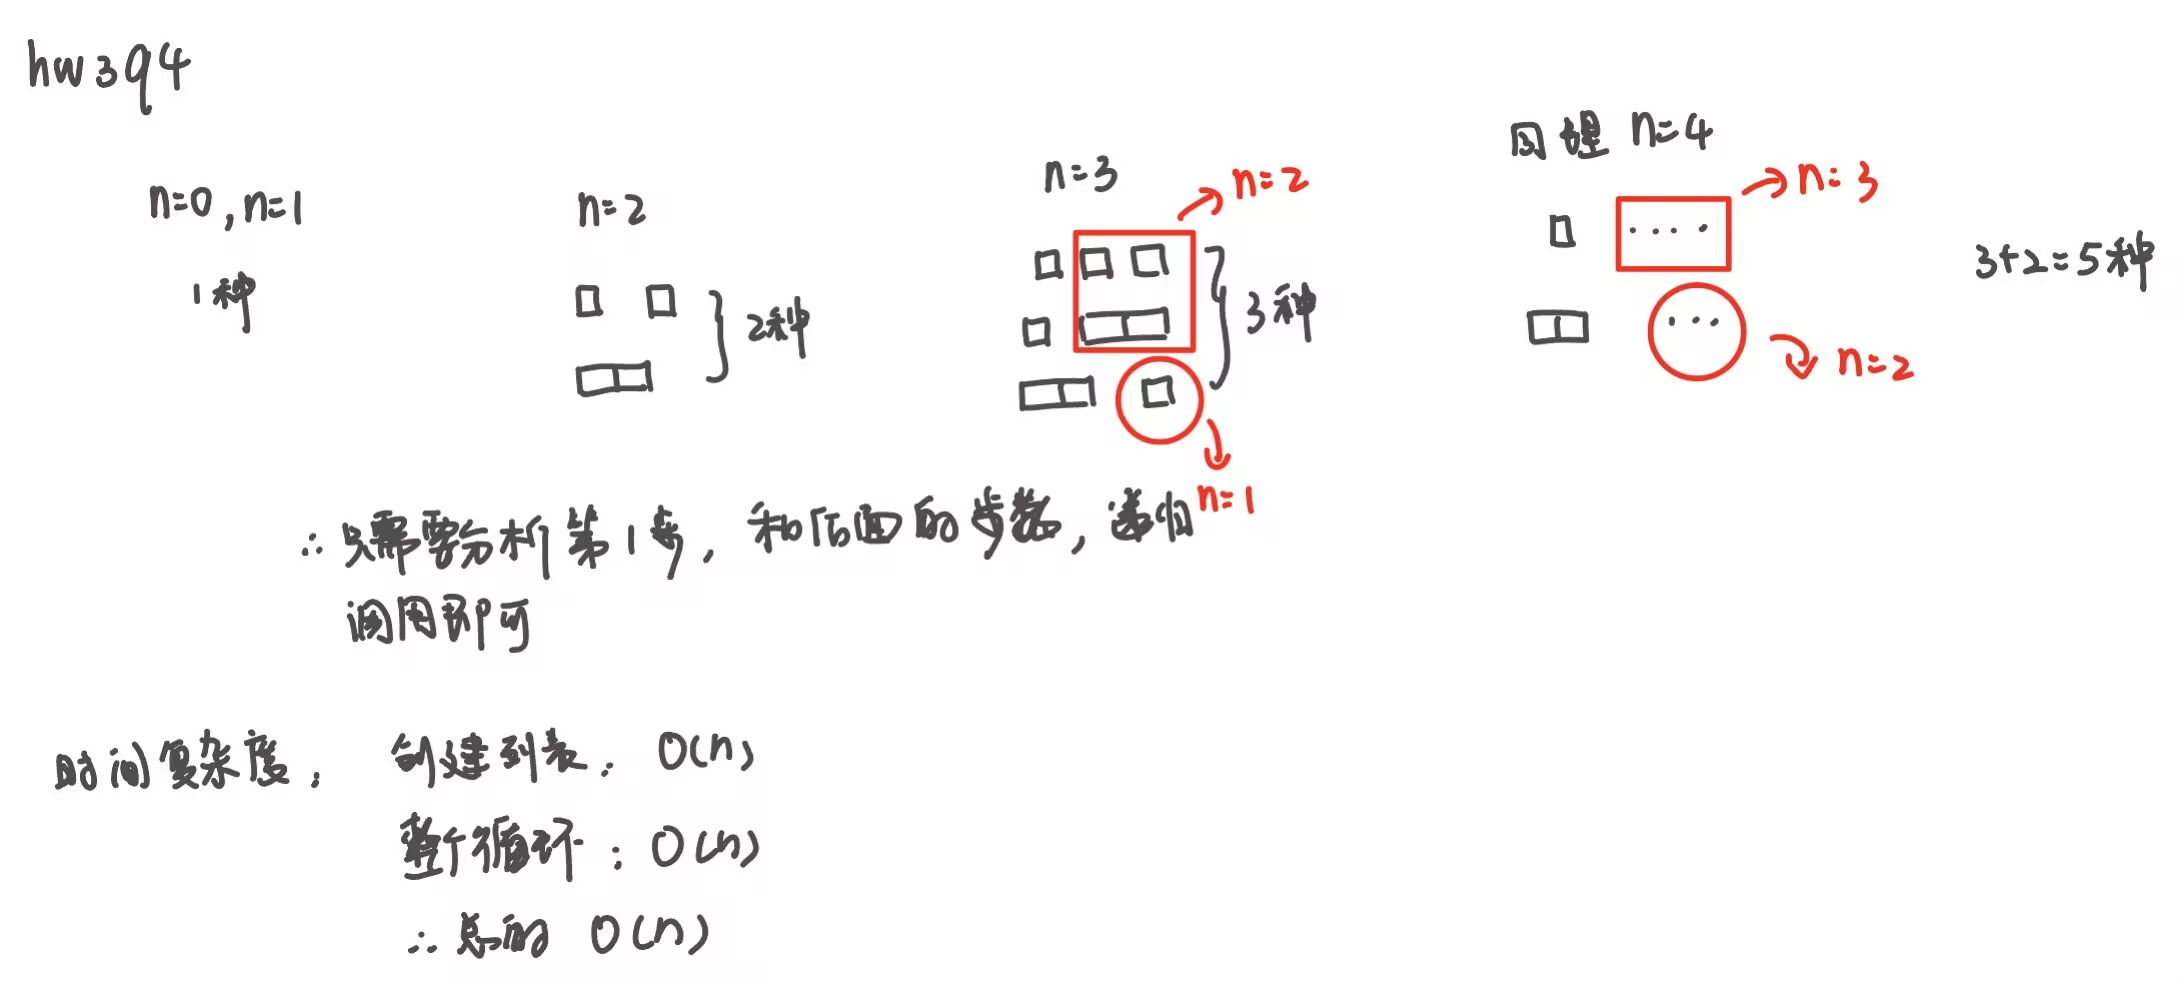 hw3q4
n=0, n=1
1种
n=2
2种
n=3
n=2
3种
n=1
同理 n=4
n=3
n=2
3+2=5种
∴ 只需要分析第1步, 和后面的步数, 递归
调用即可
时间复杂度: 创建列表: O(n)
整个循环: O(n)
∴ 总的 O(n)